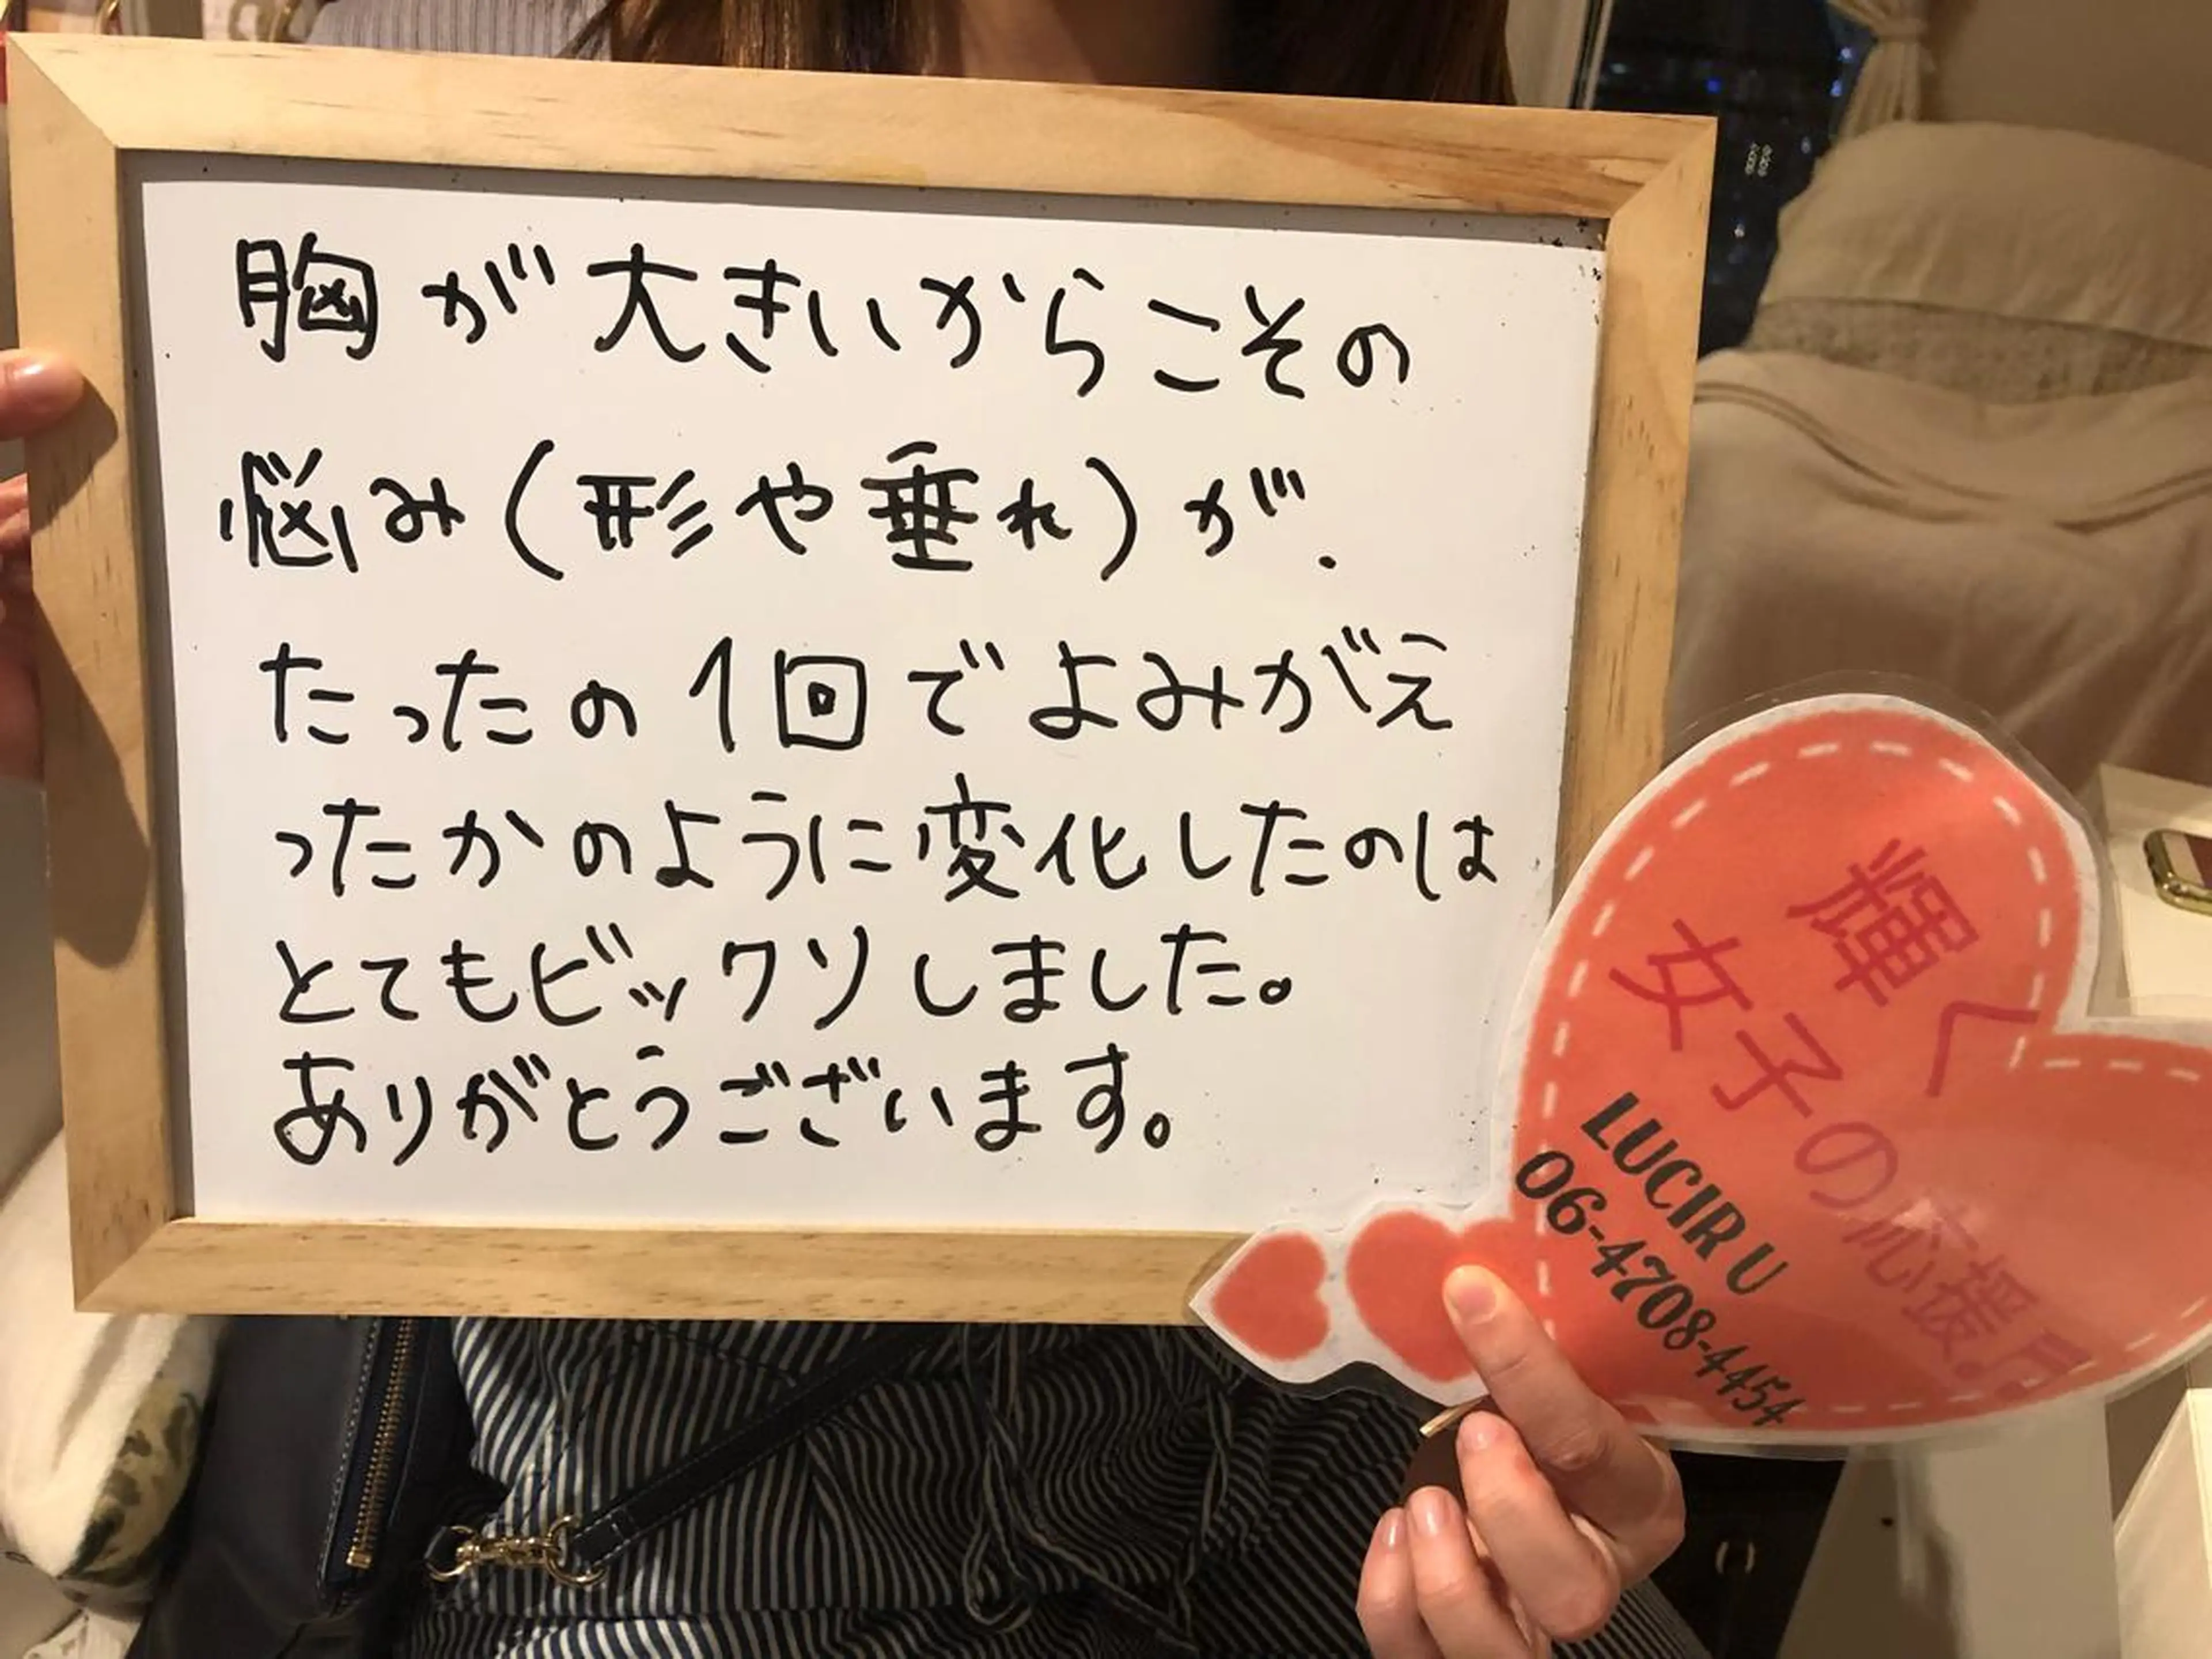 胸が大きいからこその
悩み(形や垂れ)が、
たったの1回でよみがえ
ったかのように変化したのは
とてもビックリしました。
ありがとうございます。
輝く
女子の応援
LUCIR U
06-4708-4454